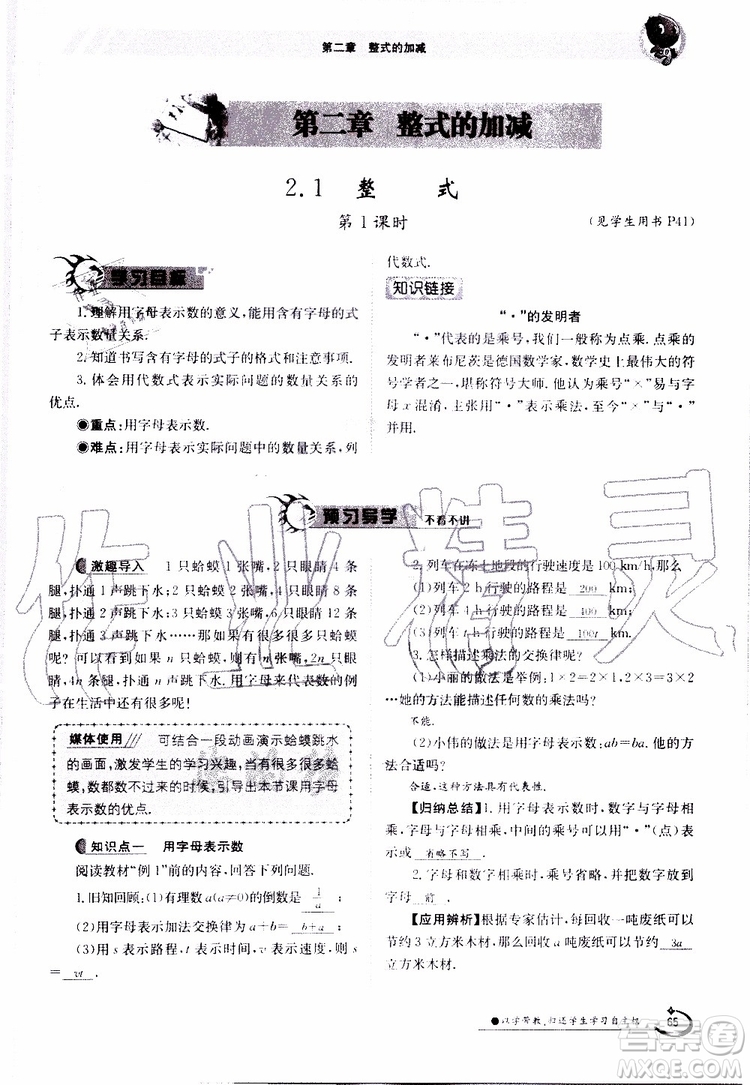 第二章 整式的加减
第二章 整式的加减
2.1 整 式
第1课时
(见学生用书 P41)
学习目标
1.理解用字母表示数的意义,能用含有字母的式
子表示数量关系.
2.知道书写含有字母的式子的格式和注意事项.
3.体会用代数式表示实际问题的数量关系的
优点.
●重点:用字母表示数.
●难点:用字母表示实际问题中的数量关系,列
代数式.
知识链接
“·”的发明者
“·”代表的是乘号,我们一般称为点乘.点乘的
发明者莱布尼茨是德国数学家,数学史上最伟大的符
号学者之一,堪称符号大师.他认为乘号“×”易与字
母 x 混淆,主张用“·”表示乘法,至今“×”与“·”
并用.
预习导学 不看不讲
激趣导入 1 只蛤蟆 1 张嘴,2 只眼睛 4 条
腿,扑通 1 声跳下水;2 只蛤蟆 2 张嘴,4 只眼睛 8 条
腿,扑通 2 声跳下水;3 只蛤蟆 3 张嘴,6 只眼睛 12 条
腿,扑通 3 声跳下水……那如果有很多很多的蛤蟆
呢? 可以表示成如果 n 只蛤蟆,则有 n 张嘴,2n 只眼
睛,4n 条腿,扑通 n 声跳下水.用字母来代表数的例
子在生活中还有很多哦!
媒体使用 可结合一段动画演示蛤蟆跳水
的画面,激发学生的学习兴趣,当有很多很多蛤
蟆,数都数不过来的时候,体会本节课用字母
表示数的优点.
知识点一 用字母表示数
阅读教材“例 1”前的内容,回答下列问题.
1.旧知回顾:(1)有理数 a(a≠0)的倒数是 1/a .
(2)用字母表示加法交换律为 a+b= b+a .
(3)用 s 表示路程,t 表示时间,v 表示速度,则 s
= vt .
2.列车在冻土地段的行驶速度是 100 km/h,那么
(1)列车 2 h 行驶的路程是 200 km;
(2)列车 3 h 行驶的路程是 300 km;
(3)列车 t h 行驶的路程是 100t km.
3.怎样描述乘法的交换律呢?
(1)小丽的做法是举例:1×2=2×1,3×4=4×3,
…她的方法能描述任何数的乘法吗?
不能.
(2)小伟的做法是用字母表示数:ab=ba.他的方
法合适吗?
合适,这种方法具有代表性.
【归纳总结】1.用字母表示数时,数字与字母相
乘,字母与字母相乘,中间的乘号可以用“·”(点)表
示或 省略不写 .
2.字母和数字相乘时,乘号省略,并把数字放到
字母 前 .
【应用辨析】根据专家估计,一吨废纸可以
节约 3 立方米木材,那么回收 a 吨废纸可以节约 3a
立方米木材.
●以学带教,归还学生学习自主权 65
作业精灵
答案圈